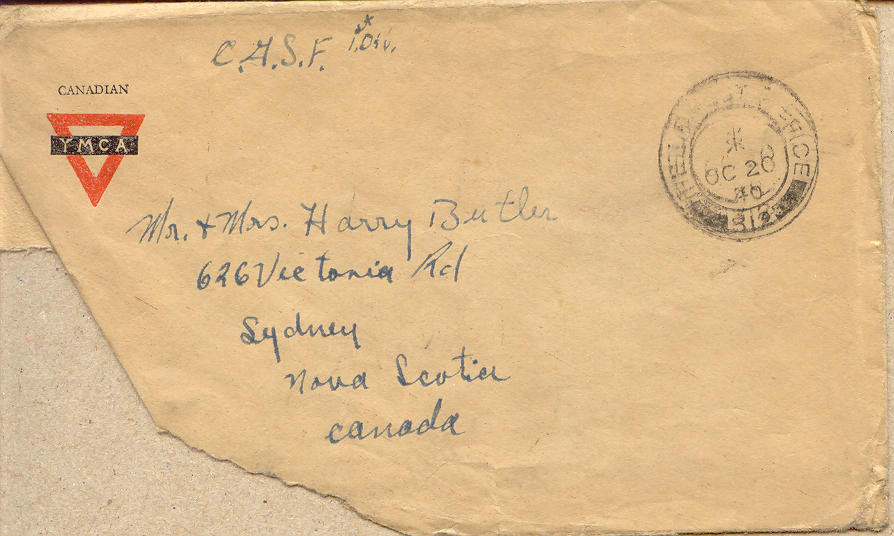 C.A.S.F. 1st Div.
CANADIAN
YMCA
FIELD POST OFFICE
OC 26
40
Mr. & Mrs. Harry Butler
626 Victoria Rd
Sydney
Nova Scotia
Canada